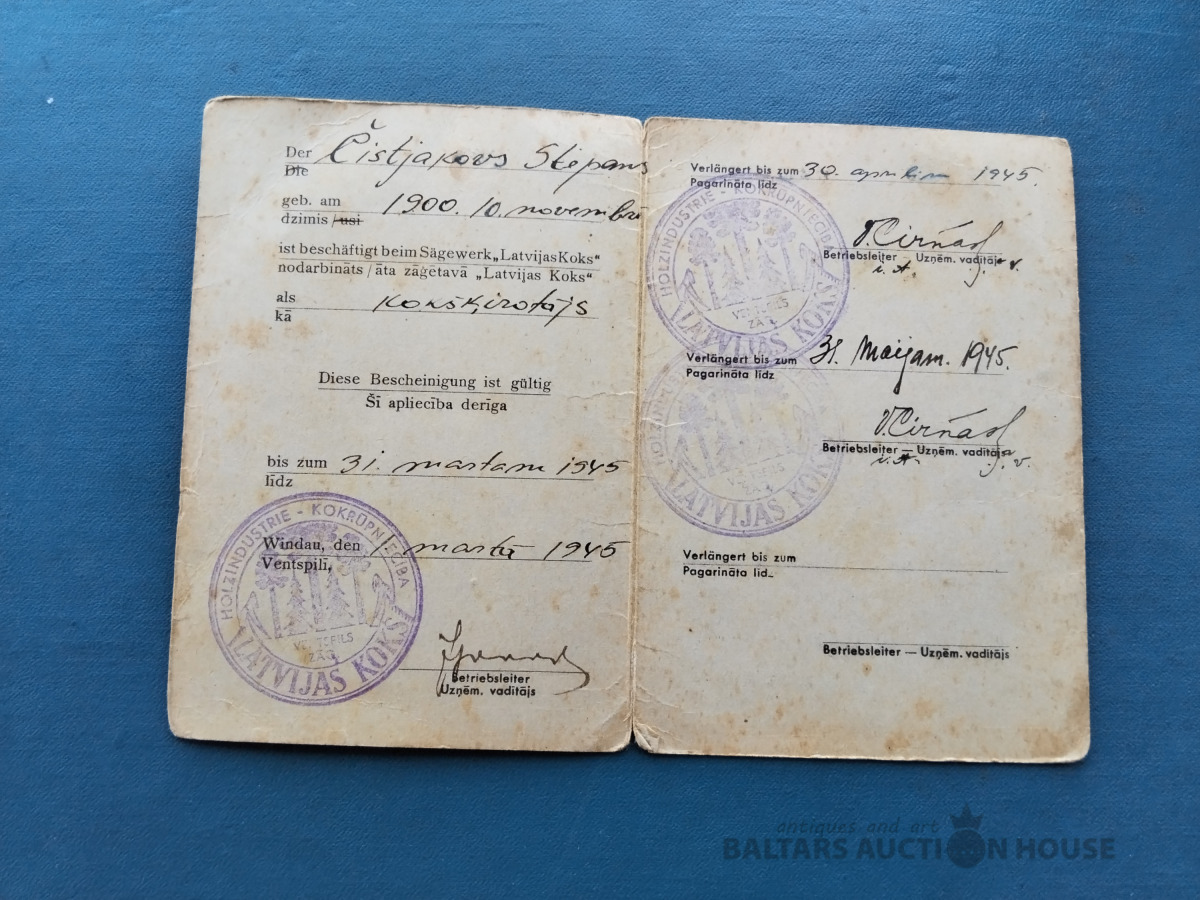 Der Čistjakovs Stepans
Die
geb. am 1900. 10. novembrī
dzimis /usi
ist beschäftigt beim Sägewerk „Latvijas Koks“
nodarbināts / āta zāģētavā „Latvijas Koks“
als kokšķirotājs
kā
Diese Bescheinigung ist gültig
Šī apliecība derīga
bis zum 31. martam 1945
līdz
HOLZINDUSTRIE - KOKRŪPNIECĪBA
Windau, den 1 martā 1945
Ventspilī,
VENTSPILS
ZĀĢ.
"LATVIJAS KOKS"
Betriebsleiter
Uzņēm. vadītājs
Verlängert bis zum 30. aprīlim 1945.
Pagarināta līdz
HOLZINDUSTRIE - KOKRŪPNIECĪBA
V. Cirņās
Betriebsleiter — Uzņēm. vadītājs
VENTSPILS
ZĀĢ.
"LATVIJAS KOKS"
Verlängert bis zum 31. Maijam. 1945.
Pagarināta līdz
V. Cirņās
Betriebsleiter — Uzņēm. vadītājs
"LATVIJAS KOKS"
Verlängert bis zum
Pagarināta līd
Betriebsleiter — Uzņēm. vadītājs
antiques and art
BALTARS AUCTION HOUSE